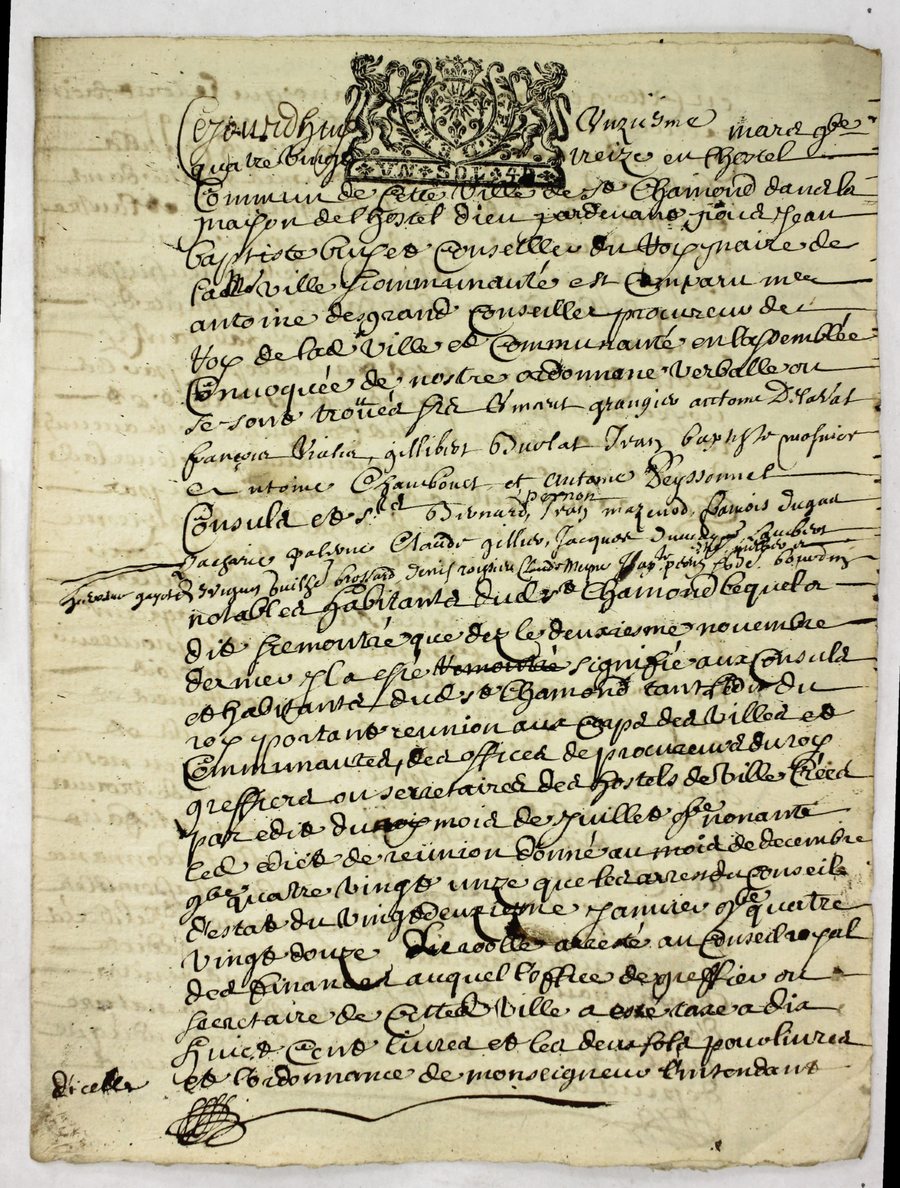 Cejourdhuy Unziesme mars gbc
quatre vingt treize en lhostel
UN SOL 4D
Commun de Cette Ville de st Chamond dans la
maison de lhostel dieu pardevant nous Jean
baptiste Conseiller du Roy maire de
ladte Ville & communauté est Comparu mre
antoine desgrand Conseiller procureur du
Roy de lad Ville et Communauté en lassemblée
Convoquée de nostre ordonnance verballe ou
se sont trouués srs Grangier anttoine Delaval
françois Vialis, gillibert Jean baptiste mosnier
antoine Chambouet et Antoine Peyssonnel
pernon
Consuls et srs Bernard, Jean mazenod, francois dugas
Zacharie palerne Claude gillier, Jacques
gayot brossard denis Claude bourdin
notables habitants dud st Chamond lequel a
dit & remontré que dez le deuxiesme novembre
dernier il a esté remontré signifié aux Consuls
et habitants dud st Chamond tant ledit du
roy portant reunion aux Corps des villes et
Communautés, des offices de procureurs du roy
greffiers ou secretaires des hostels de ville Créés
par edit du roy mois de Juillet gbc nonante
led edict de reünion donné au mois de decembre
gbc quatre vingt unze que les arrest du Conseil
destat du vingtdeuziesme Janvier gbc quatre
vingt douze du roolle arresté au Conseil royal
des finances auquel loffice de greffier ou
secretaire de Cetted Ville a esté taxé a dix
huict Cent livres et les deux sols pour livres
dicelle
et lordonnance de monseigneur lintendant